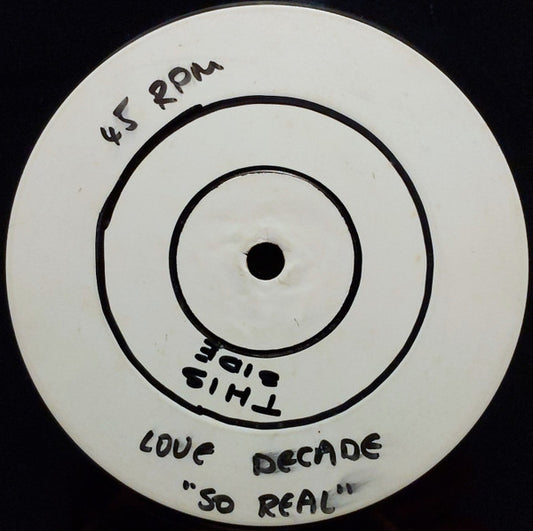 45 RPM
THIS
SIDE
LOVE DECADE
"SO REAL"